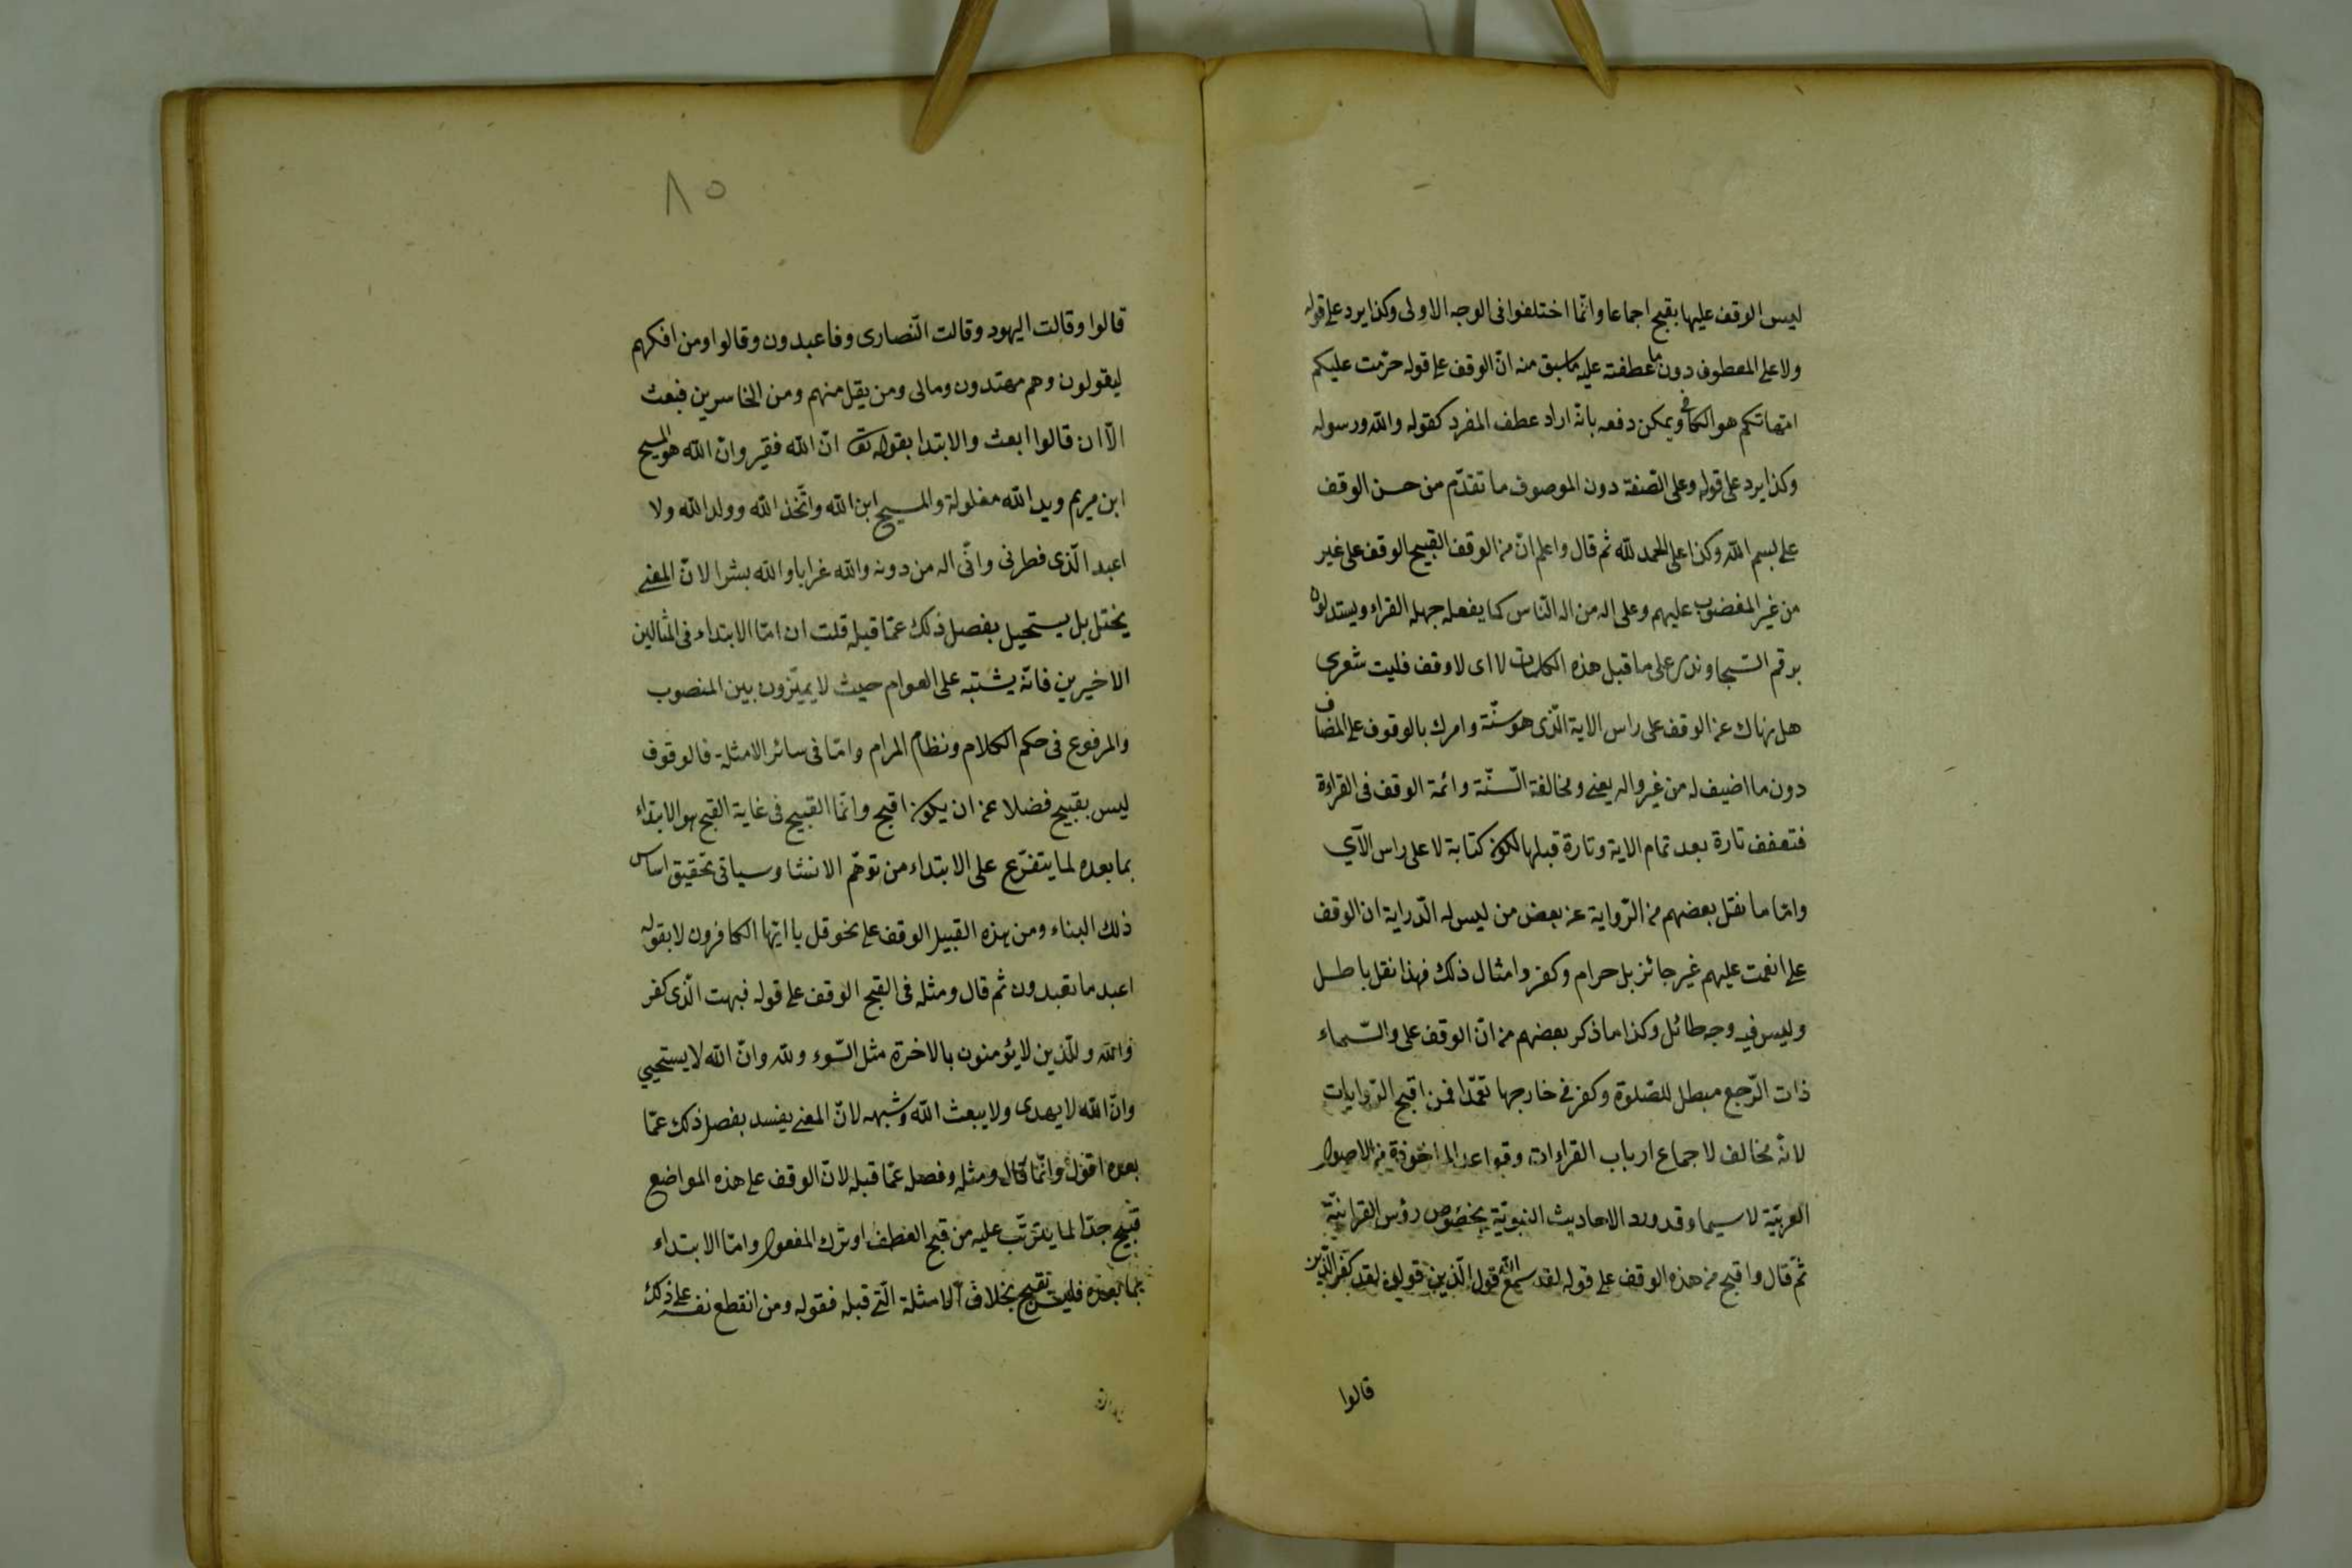 ليس الوقف عليها بقبيح اجماعا وانّما اختلفوا فى الوجه الاولى وكذا يرد على قوله
ولا على المعطوف دون ما عطفته عليه ما سبق منه انّ الوقف على قوله حرّمت عليكم
امّهاتكم هو الكافى ويمكن دفعه بانّه اراد عطف المفرد كقوله والله ورسوله
وكذا يرد على قوله وعلى الصّفة دون الموصوف ما تقدّم من حسن الوقف
على بسم الله وكذا على الحمد لله ثم قال واعلم انّ من الوقف القبيح الوقف على غير
من غير المغضوب عليهم وعلى اله من اله النّاس كما يفعله جهلة القراء ويستدلون
برقم السّجاوندى على ما قبل هذه الكلمات لا اى لا وقف فليت شعرى
هل نهاك عن الوقف على راس الاية الّذى هو سنّة وامرك بالوقوف على المضاف
دون ما اضيف له من غير واله يعنى ومخالفة السّنّة وائمة الوقف فى القراءة
فتقفف تارة بعد تمام الاية وتارة قبلها لكون كتابة لا على راس الآي
وامّا ما نقل بعضهم من الرّواية عن بعض من ليس له الدّراية ان الوقف
على انعمت عليهم غير جائز بل حرام وكفر وامثال ذلك فهذا نقل باطل
وليس فيه وجه طائل وكذا ما ذكر بعضهم من انّ الوقف على والسّماء
ذات الرّجع مبطل للصّلوة وكفر فى خارجها تعمّدا فمن اقبح الرّوايات
لانّه مخالف لاجماع ارباب القراءات وقواعد الماخوذة من الاصول
العربيّة لا سيما وقد ورد الاحاديث النبويّة بخصوص رؤس القرانيّة
ثمّ قال واقبح من هذه الوقف على قوله لقد سمع الله قول الّذين قولوا لقد كفر الّذين
قالوا
٨٥
قالوا وقالت اليهود وقالت النّصارى وفاعبدون وقالوا ومن افكهم
ليقولون وهم مهتدون ومالى ومن يقل منهم ومن الخاسرين فبعث
الّا ان قالوا ابعث والابتدا بقوله تع انّ الله فقير وانّ الله هو المسيح
ابن مريم ويد الله مغلولة والمسيح ابن الله واتّخذ الله وولد الله ولا
اعبد الّذى فطرنى وانّى اله من دونه والله غرابا والله بشرا لانّ المعنى
يختل بل يستحيل بفصل ذلك عمّا قبله قلت ان امّا الابتداء فى المثالين
الاخيرين فانّه يشتبه على العوام حيث لا يميّزون بين المنصوب
والمرفوع فى حكم الكلام ونظام المرام وامّا فى سائر الامثلة فالوقوف
ليس بقبيح فضلا عن ان يكون اقبح وانّما القبيح فى غاية القبح هو الابتداء
بما بعده لما يتفرّع على الابتداء من توهّم الانشا وسياتى تحقيق اساس
ذلك البناء ومن هذه القبيل الوقف على نحو قل يا ايّها الكافرون لا بقوله
اعبد ما تعبدون ثم قال ومثله فى القبح الوقف على قوله فبهت الّذى كفر
والله وللّذين لا يؤمنون بالاخرة مثل السّوء ولله وانّ الله لا يستحيي
وانّ الله لا يهدى ولا يبعث الله وشبهه لانّ المعنى يفسد بفصل ذلك عمّا
بعده اقول وانّما قال ومثله وفصله عمّا قبله لانّ الوقف على هذه المواضع
قبيح جدّا لما يترتّب عليه من قبح العطف او ترك المفعول وامّا الابتداء
بما بعده فليس بقبيح بخلاف الامثلة الّتى قبله فقوله ومن انقطع نفسه على ذلك